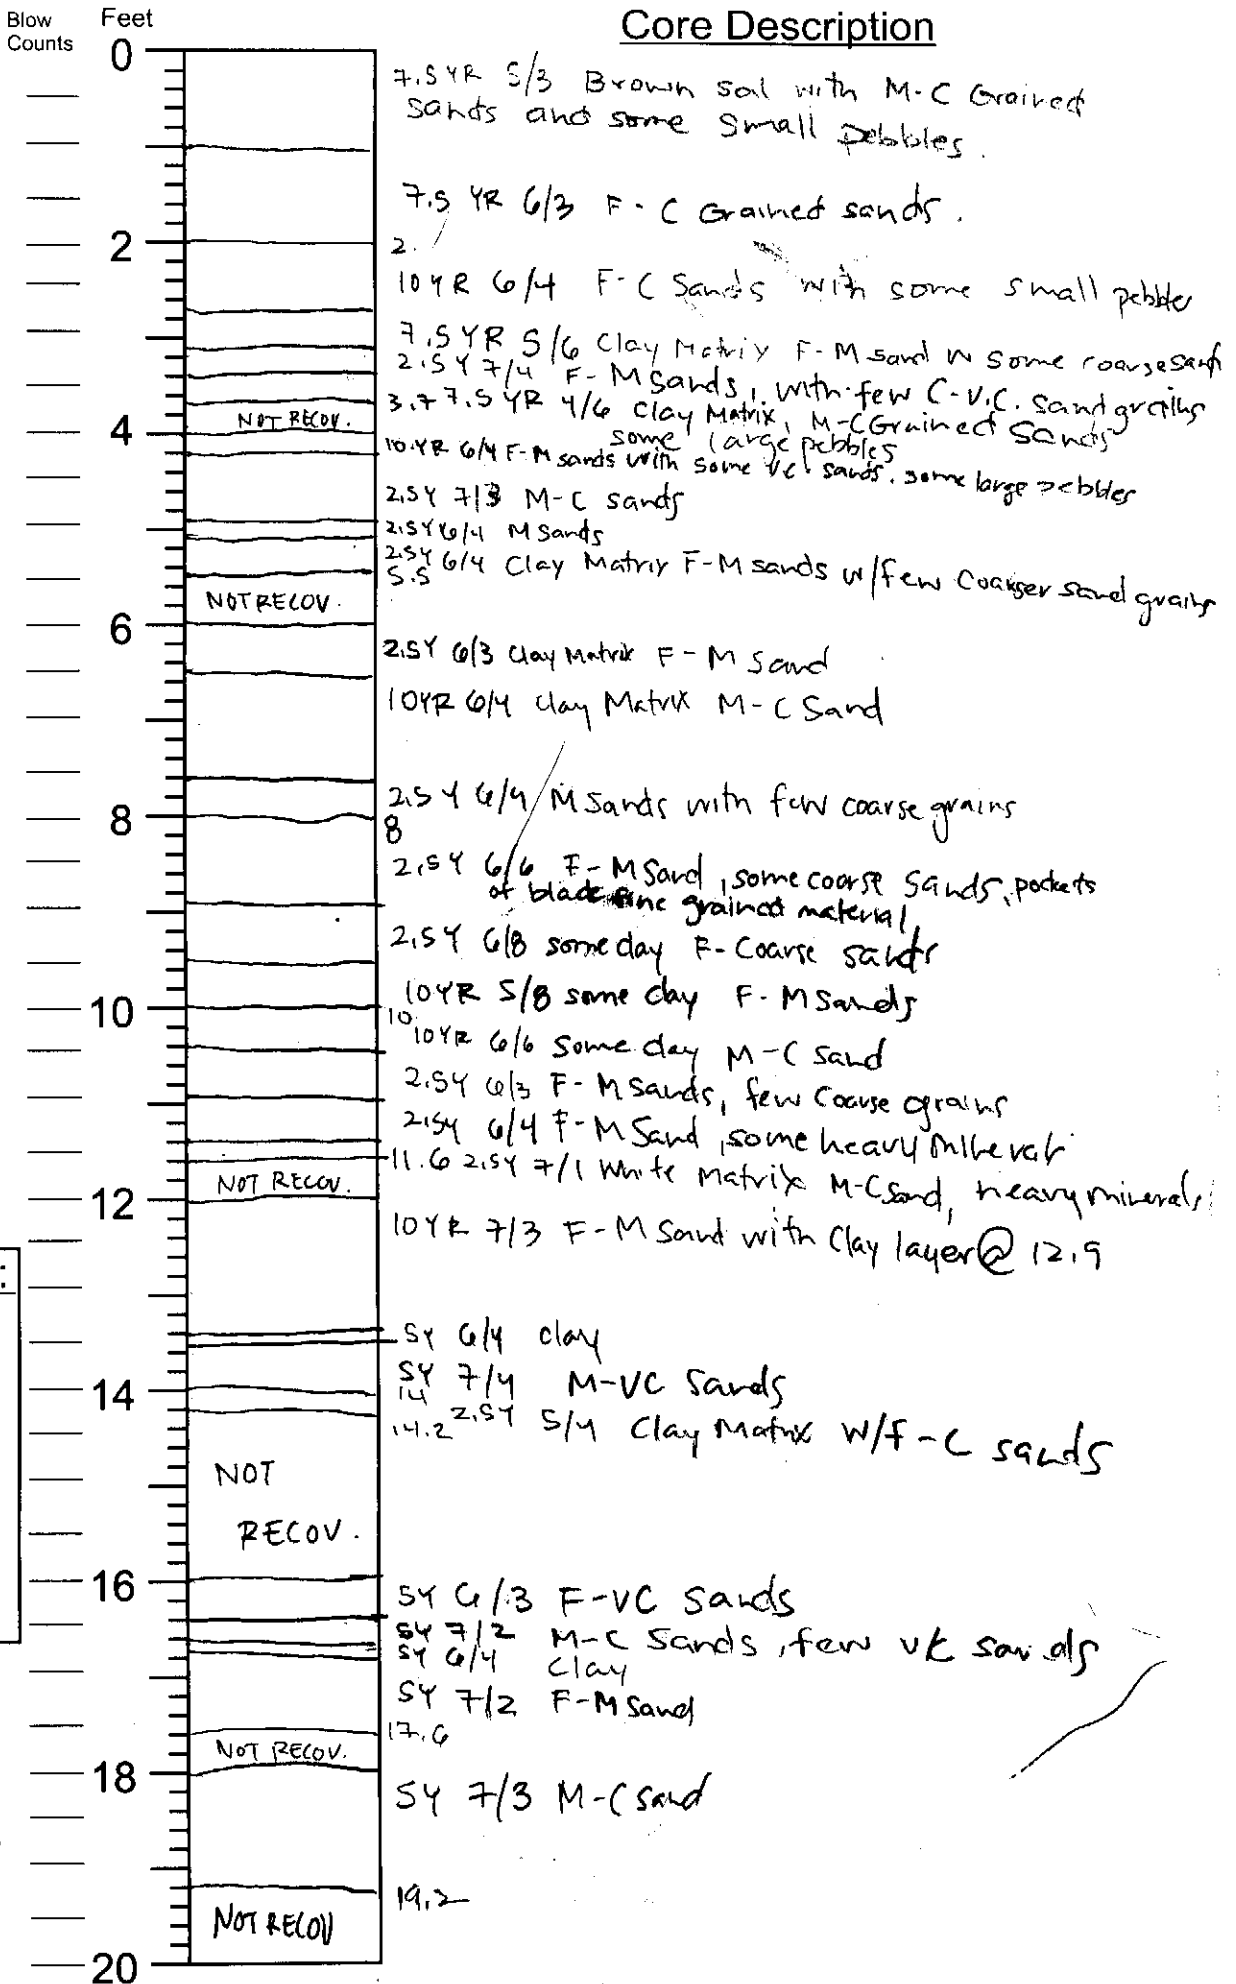 Blow Counts
Feet
Core Description
0
7.5 YR 5/3 Brown soil with M-C Grained
sands and some small pebbles.
7.5 YR 6/3 F-C Grained sands.
2
2.
10 YR 6/4 F-C Sands with some small pebbles
7.5 YR 5/6 Clay Matrix F-M sand w some coarse sand
2.5 Y 7/4 F-M Sands, with few C-V.C. sand grains
3.7 7.5 YR 4/6 Clay Matrix, M-C Grained Sands
NOT RECOV.
some large pebbles
4
10 YR 6/4 F-M sands with some vc sands. some large pebbles
2.5Y 7/3 M-C sands
2.5Y 6/4 M Sands
2.5Y 6/4 Clay Matrix F-M sands w/few Coarser sand grains
5.5
NOT RECOV.
6
2.5Y 6/3 Clay Matrix F-M Sand
10YR 6/4 Clay Matrix M-C Sand
2.5 Y 6/4 M Sands with few coarse grains
8
8
2.5Y 6/6 F-M Sand, some coarse sands, pockets
of black fine grained material
2.5Y 6/8 some clay F-Coarse sands
10YR 5/8 some clay F-M Sands
10
10
10YR 6/6 some clay M-C sand
2.5Y 6/3 F-M Sands, few coarse grains
2.5Y 6/4 F-M Sand, some heavy minerals
11.6 2.5Y 7/1 White Matrix M-C Sand, heavy minerals
NOT RECOV.
12
10 YR 7/3 F-M Sand with Clay layer @ 12.9
5Y 6/4 clay
5Y 7/4 M-VC Sands
14
14
14.2 2.5Y 5/4 Clay Matrix w/f-c sands
NOT
RECOV.
16
5Y 6/3 F-VC Sands
5Y 7/2 M-C Sands, few vc sands
5Y 6/4 Clay
5Y 7/2 F-M Sand
17.6
NOT RECOV.
18
5Y 7/3 M-C sand
19.2
NOT RECOV
20